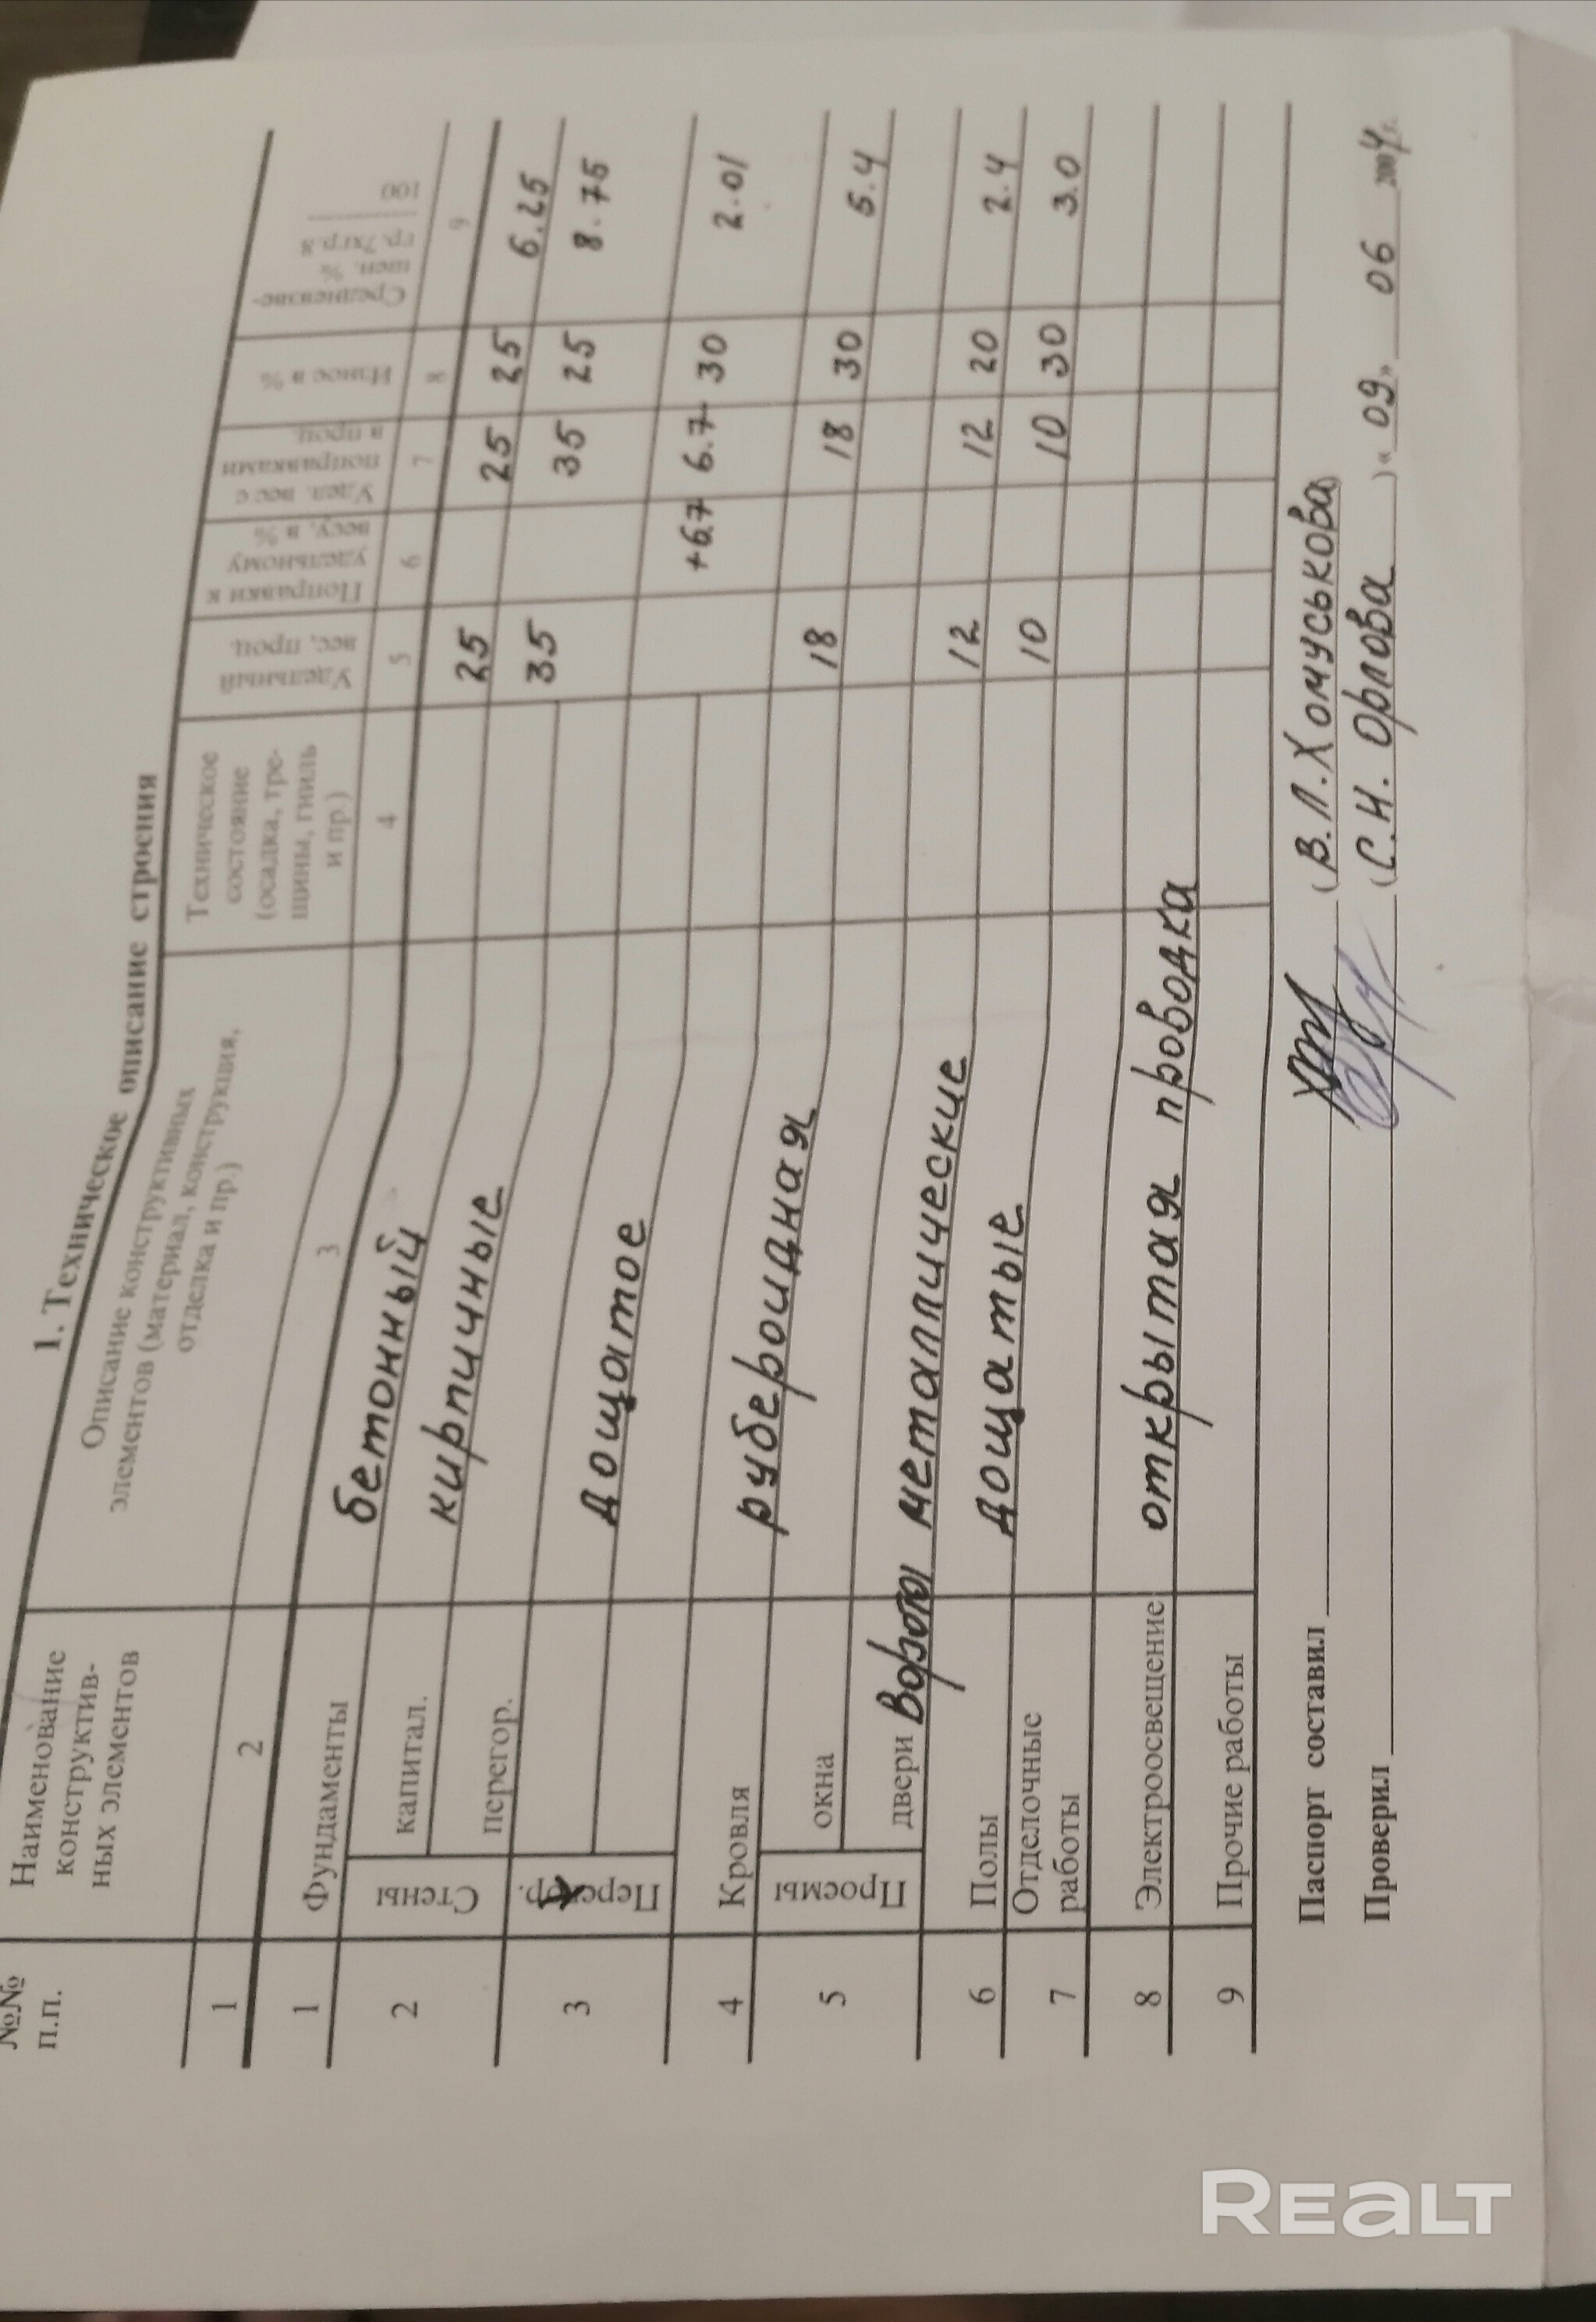 1. Техническое описание строения
№№ п.п.
Наименование конструктив- ных элементов
Описание конструктивных элементов (материал, конструкция, отделка и пр.)
Техническое состояние (осадка, тре- щины, гниль и пр.)
Удельный вес, проц.
Поправки к удельному весу, в %
Удел. вес с поправками в проц.
Износ в %
Средневзве- шен. % гр.7хгр.8 100
1 2 3 4 5 6 7 8 9
1 Фундаменты бетонный 25 25 25 6.25
2 Стены капитал. кирпичные 35 35 25 8.75
перегор.
3 Перекр. дощатое
4 Кровля рубероидная +6.7 6.7 30 2.01
5 Проемы окна 18 18 30 5.4
двери Ворота металлические
6 Полы дощатые 12 12 20 2.4
7 Отделочные работы 10 10 30 3.0
8 Электроосвещение открытая проводка
9 Прочие работы
Паспорт составил (В.Л. Хомуськова)
Проверил (С.Н. Орлова) «09» 06 2004 г.
REALT